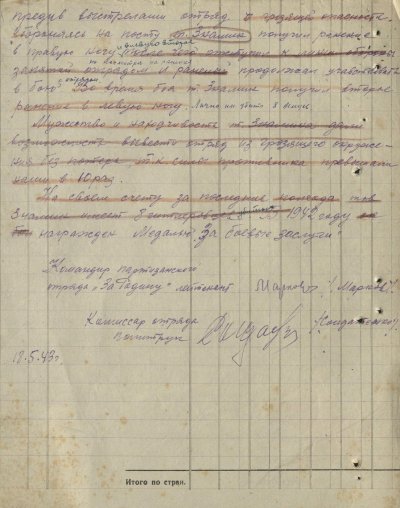 предив выстрелами отряд о грозящей опасности.
Находясь на посту т. Знамин получил ранение
в правую ногу
занятой отрядом и раненый продолжал участвовать
в бою. Во время боя т. Знамин получил второе
ранение в левую ногу. Лично им убито 8 немцев
Мужество и находчивость т. Знамина дали
возможность вывести отряд из грозящего окруже-
ния без потерь, т.к. силы противника превышали
наши в 10 раз.
На своем счету за последние тов.
Знамин имеет 8 в 1942 году
награжден Медалью "За боевые заслуги"
Командир партизанского
отряда "За Родину" лейтенант Марков /Марков/
Комиссар отряда
Политрук
12.5.43 г.
Итого по стран.